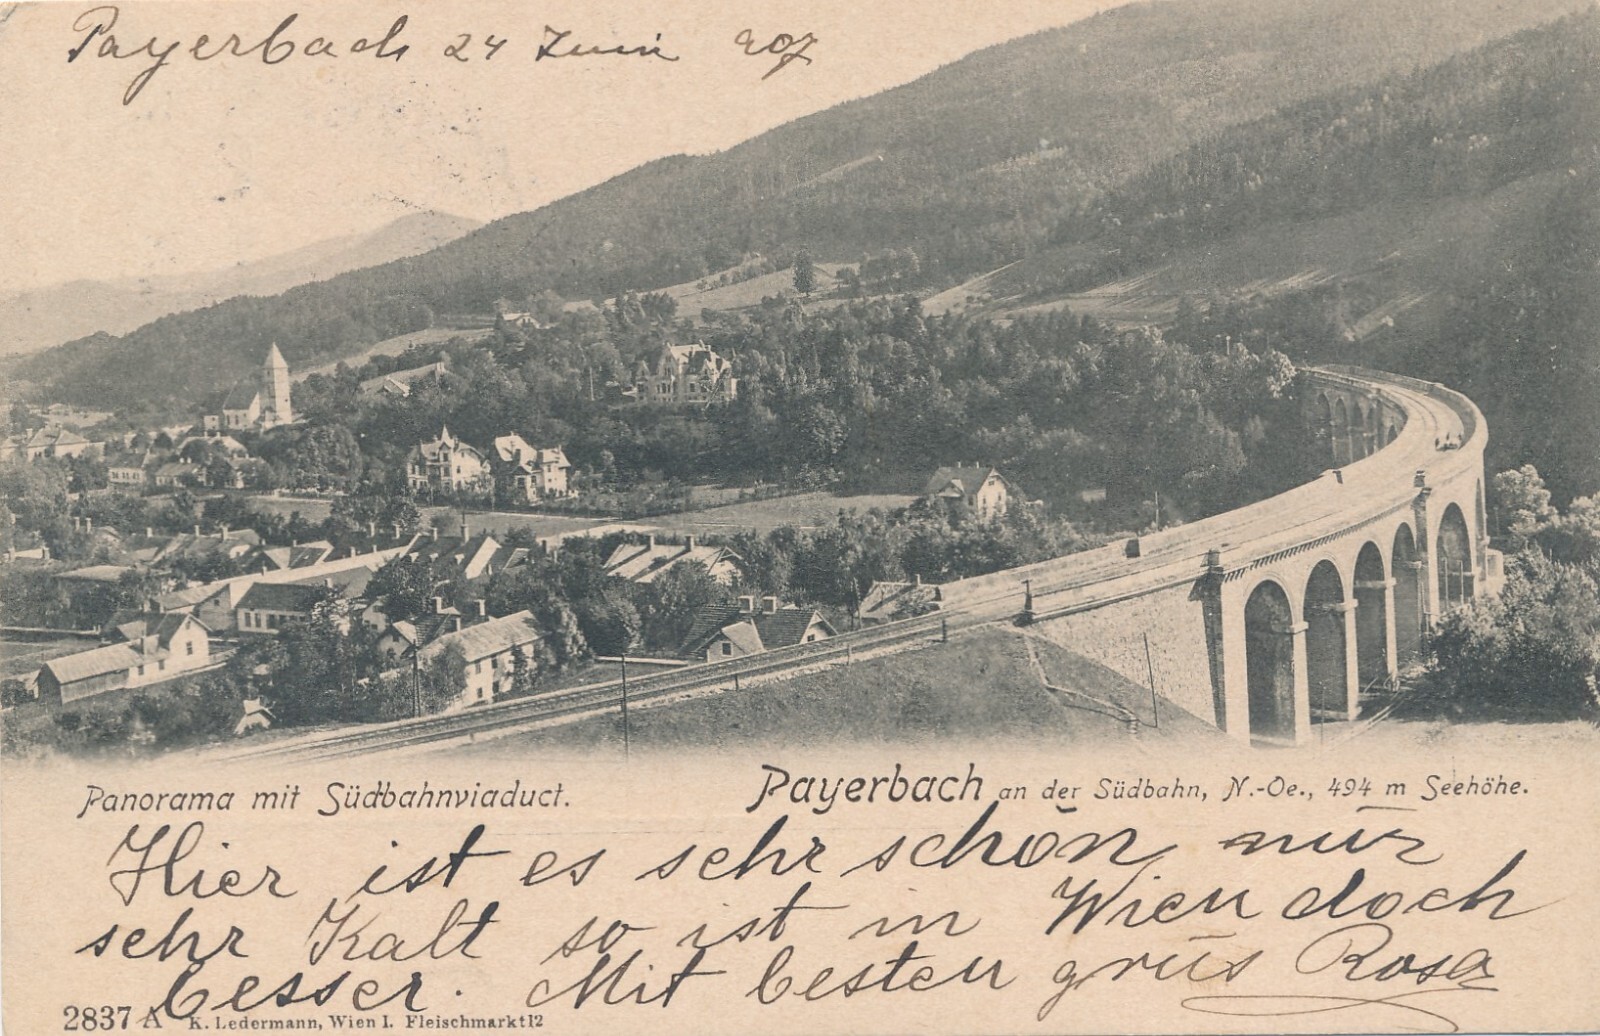 Payerbach 24 Juni 907
Panorama mit Südbahnviaduct.
Payerbach an der Südbahn, N.-Oe., 494 m Seehöhe.
Hier ist es sehr schön nur
sehr Kalt so ist in Wien doch
besser. Mit besten grüs Rosa
2837 A K. Ledermann, Wien I. Fleischmarkt 12